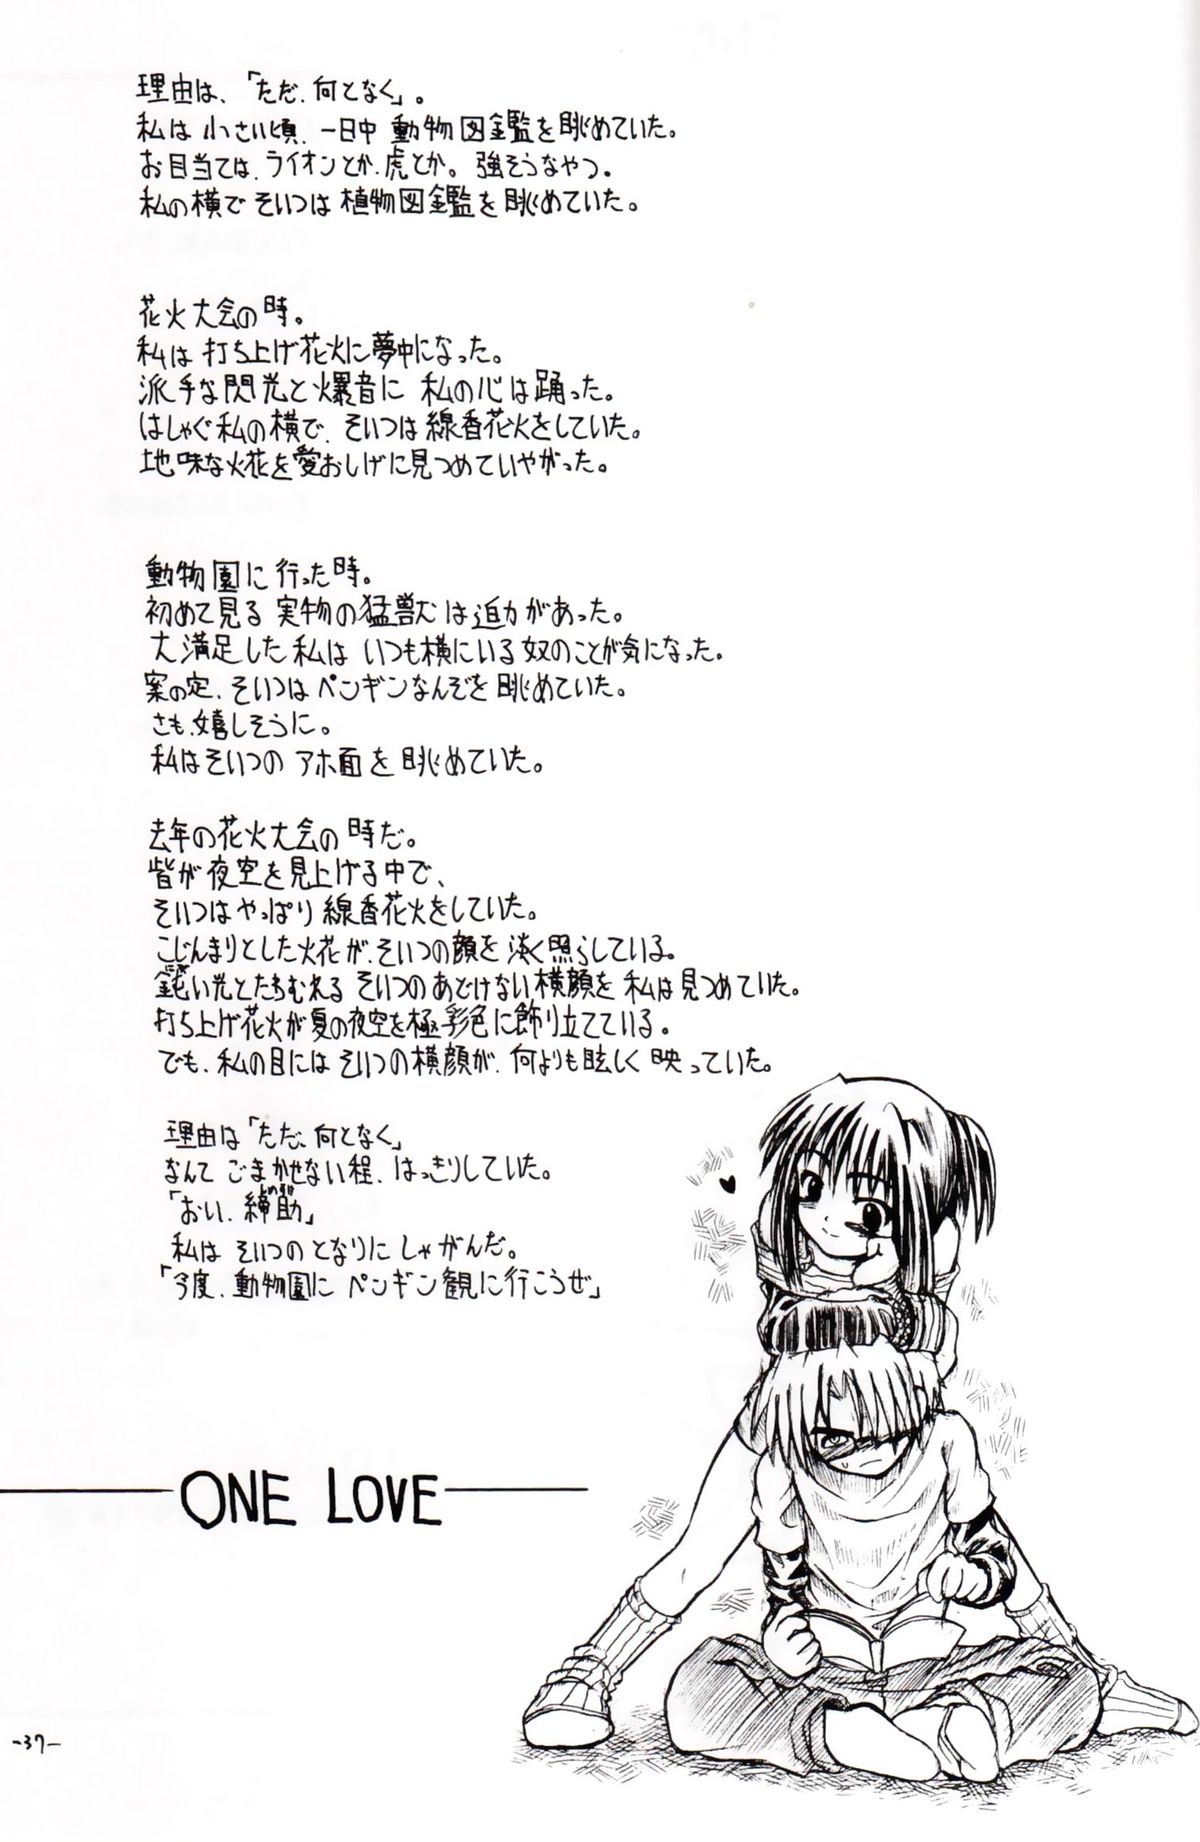 理由は、「ただ、何となく」。
私は小さい頃、一日中動物図鑑を眺めていた。
お目当ては、ライオンとか、虎とか。強そうなやつ。
私の横でそいつは植物図鑑を眺めていた。
花火大会の時。
私は打ち上げ花火に夢中になった。
派手な閃光と爆音に私の心は踊った。
はしゃぐ私の横で、そいつは線香花火をしていた。
地味な火花を愛おしげに見つめていやがった。
動物園に行った時。
初めて見る実物の猛獣は迫力があった。
大満足した私はいつも横にいる奴のことが気になった。
案の定、そいつはペンギンなんぞを眺めていた。
さも、嬉しそうに。
私はそいつのアホ面を眺めていた。
去年の花火大会の時だ。
皆が夜空を見上げる中で、
そいつはやっぱり線香花火をしていた。
こじんまりとした火花が、そいつの顔を淡く照らしている。
鈍い光とたわむれるそいつのあどけない横顔を私は見つめていた。
打ち上げ花火が夏の夜空を極彩色に飾り立てている。
でも、私の目にはそいつの横顔が、何よりも眩しく映っていた。
理由は「ただ、何となく」
なんてごまかせない程、はっきりしていた。
「おい、助」
私はそいつのとなりにしゃがんだ。
「今度、動物園にペンギン観に行こうぜ」
ONE LOVE
-37-